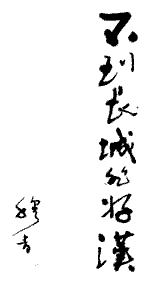 不到長城非好漢